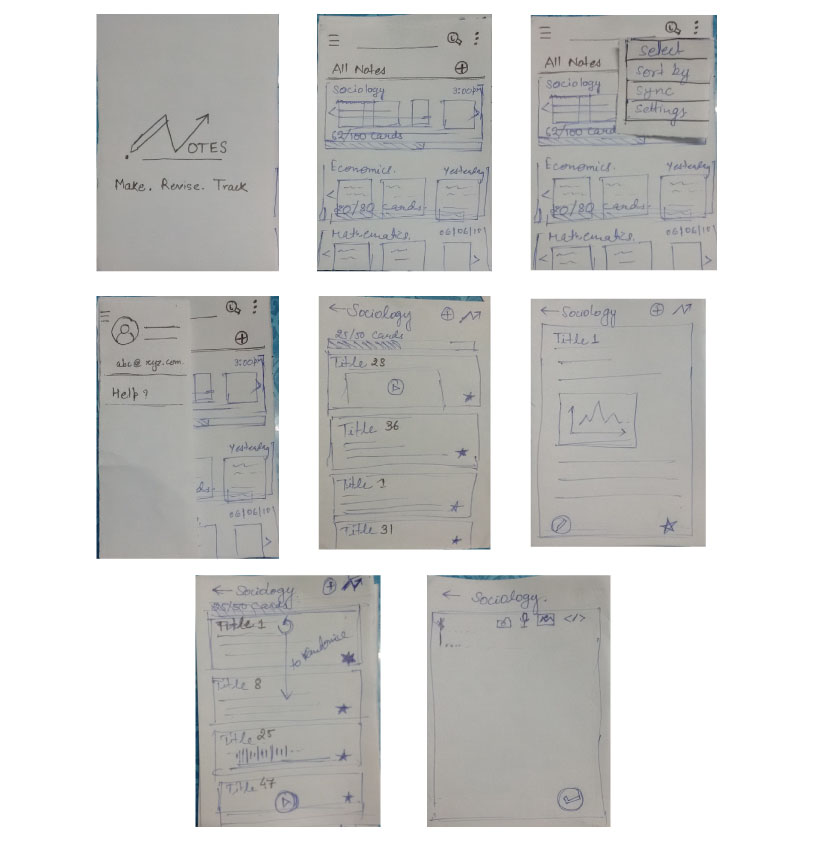 NOTES
Make. Revise. Track
All Notes
Sociology 3:00pm
62/100 cards
Economics. Yesterday
20/80 cards
Mathematics. 06/06/101
Select
Sort by
Sync
Settings
All Notes
Sociology
62/100 card
Economics. Yesterday
20/80 cards
Mathematics. 06/06/101
abc@xyz.com
3:00pm
Help?
Yesterday
ds.
06/06/101
← Sociology
25/50 cards
Title 23
Title 36
Title 1
Title 31
← Sociology
Title 1
← Sociology
25/50 Cards
Title 1
to randomise
Title 8
Title 25
Title 47
← Sociology.
</>